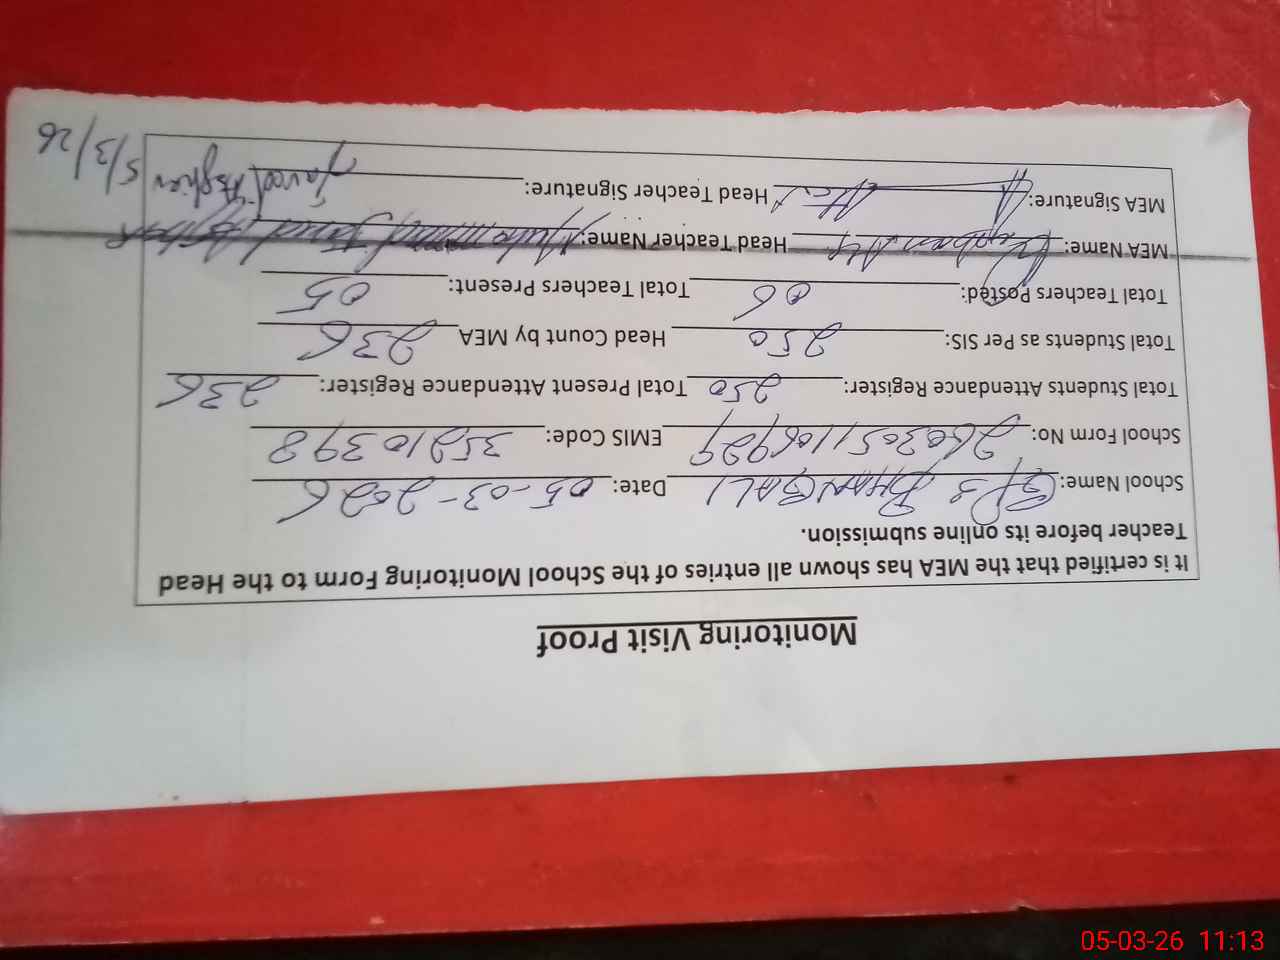 Monitoring Visit Proof
It is certified that the MEA has shown all entries of the School Monitoring Form to the Head
Teacher before its online submission.
School Name: GPS BHANGALI Date: 05-03-2026
School Form No: 2603051106929 EMIS Code: 35210398
Total Students Attendance Register: 250 Total Present Attendance Register: 236
Total Students as Per SIS: 250 Head Count by MEA 236
Total Teachers Posted: 06 Total Teachers Present: 05
MEA Name: Head Teacher Name: Muhammad Javed
MEA Signature: Head Teacher Signature: Javed Asghar 5/3/26
05-03-26 11:13